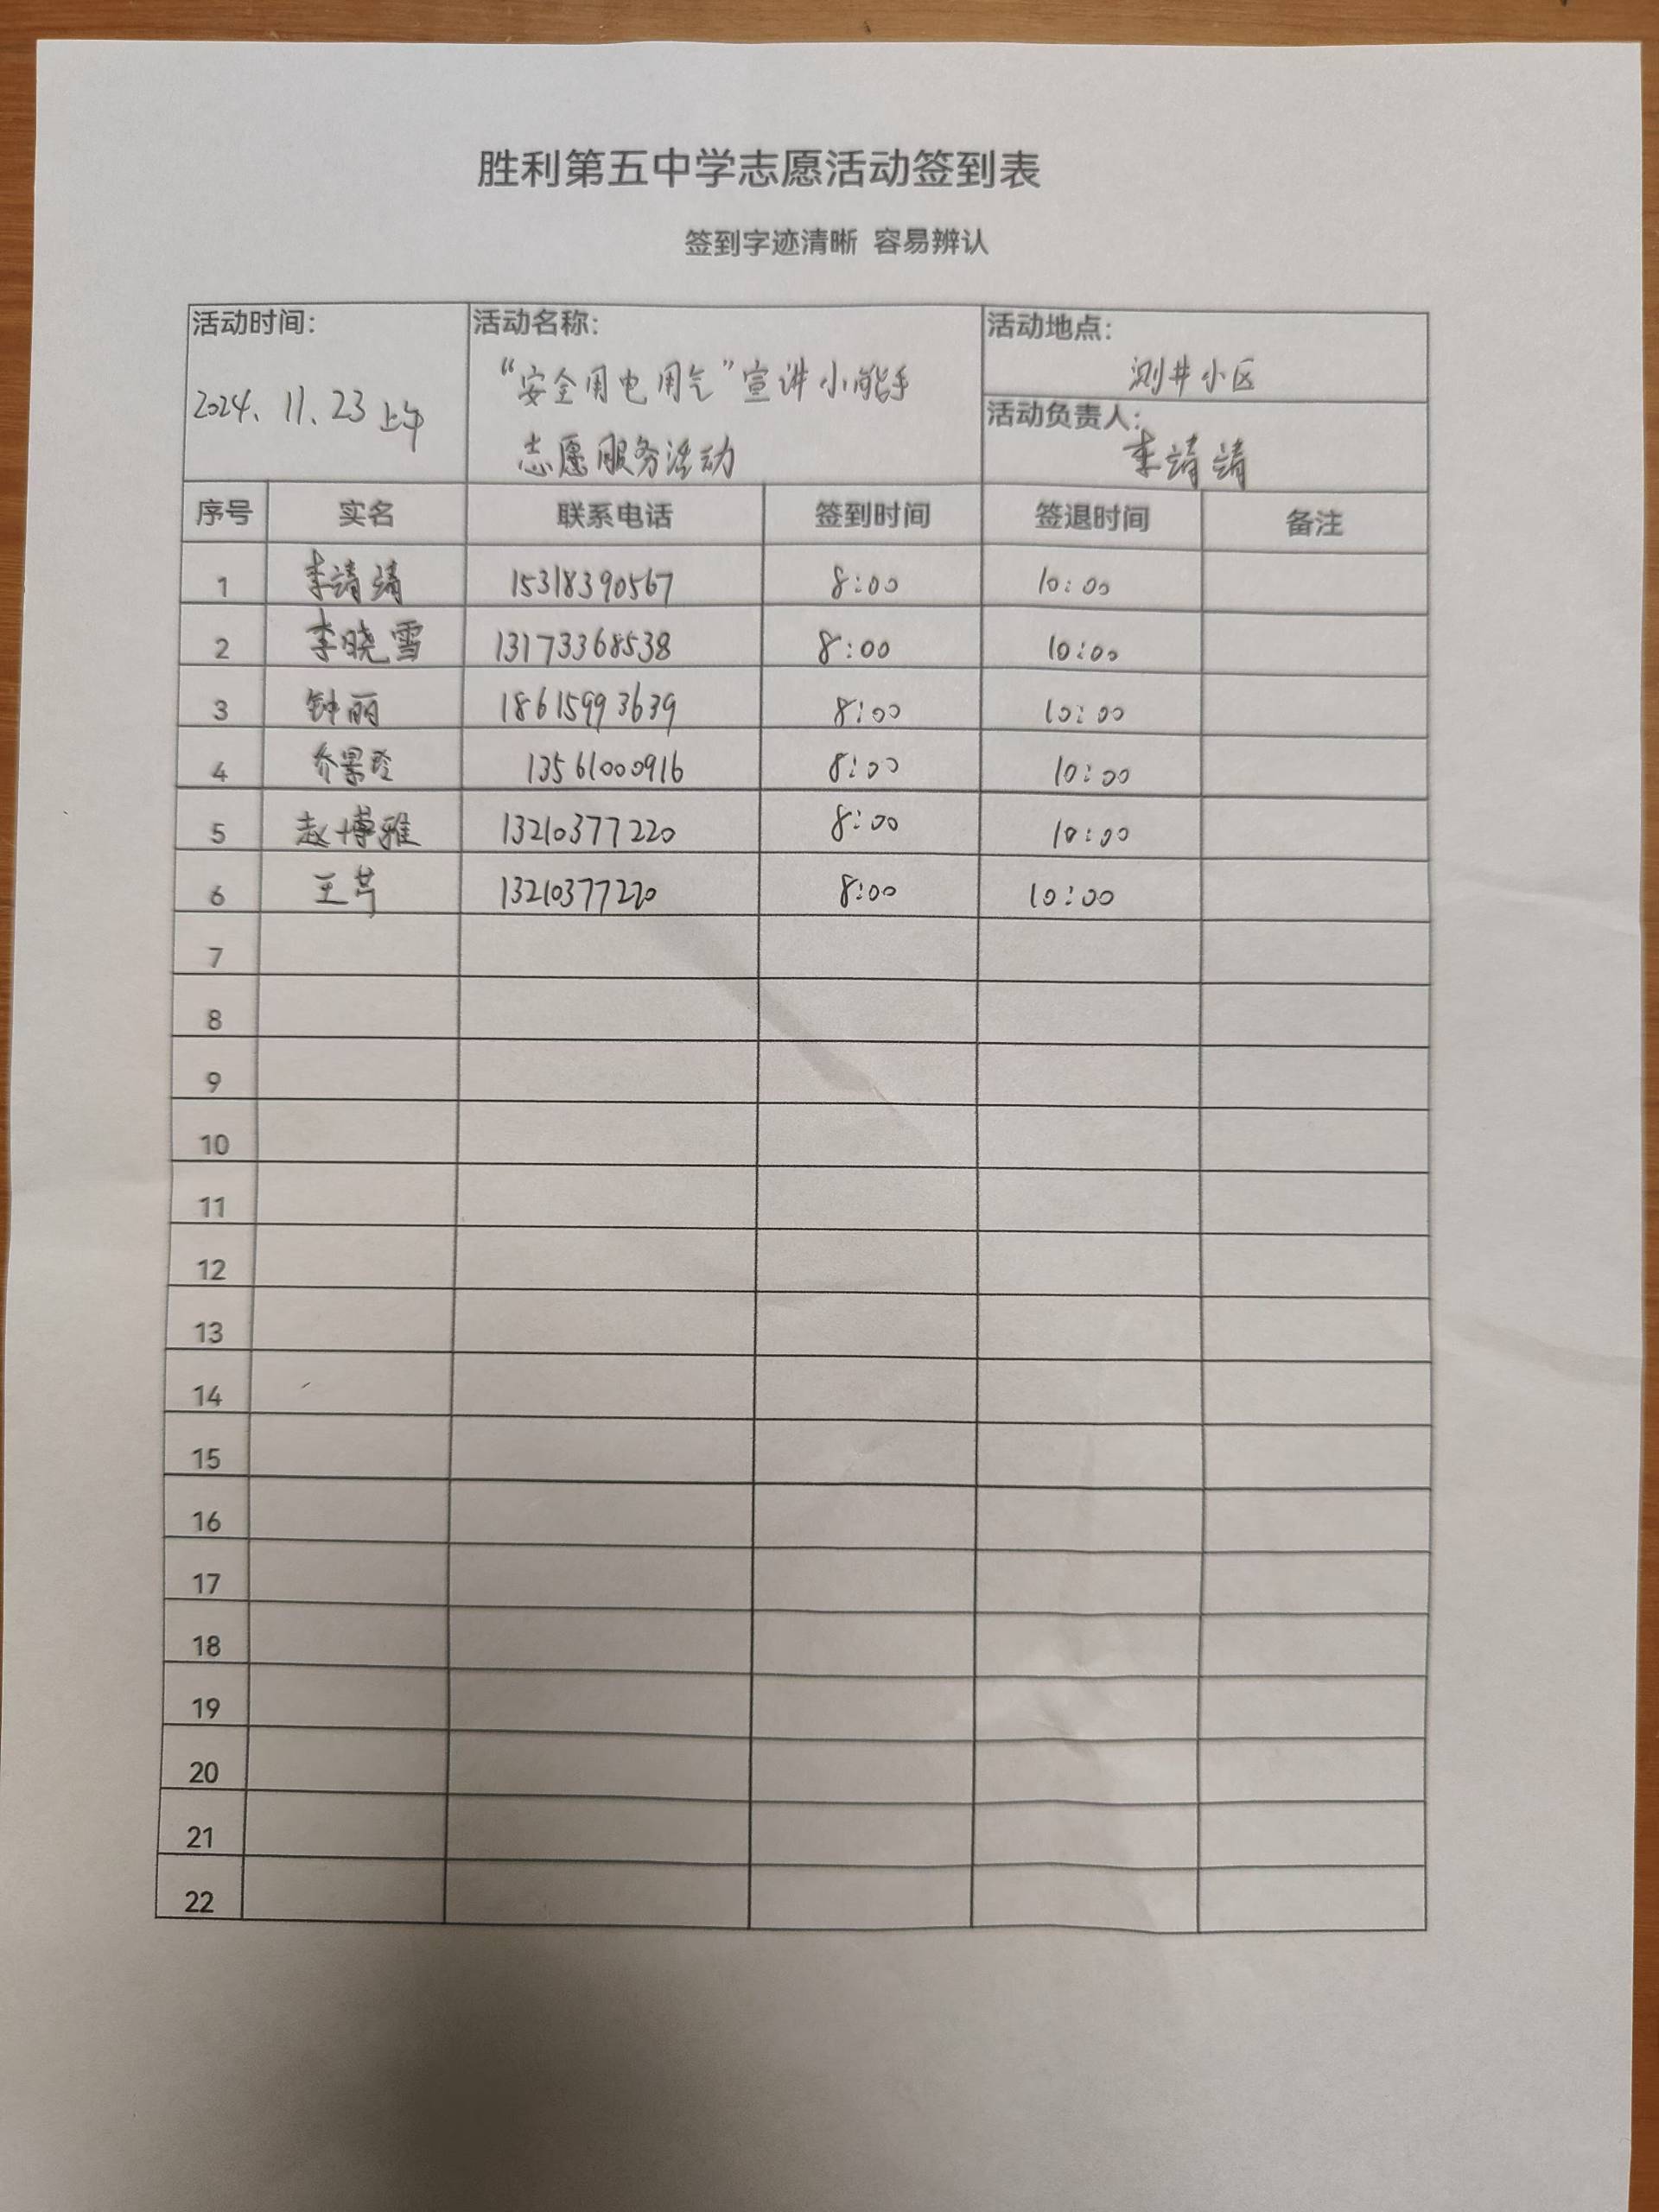 胜利第五中学志愿活动签到表
签到字迹清晰 容易辨认
活动时间: 活动名称: 活动地点:
2024. 11. 23 上午 “安全用电用气”宣讲小能手 测井小区
志愿服务活动
活动负责人:
李靖靖
序号 实名 联系电话 签到时间 签退时间 备注
1 李靖靖 15318390567 8:00 10:00
2 李晓雪 13173368538 8:00 10:00
3 钟丽 18615993639 8:00 10:00
4 乔景玲 13561000916 8:00 10:00
5 赵博雅 13210377220 8:00 10:00
6 王芹 13210377220 8:00 10:00
7
8
9
10
11
12
13
14
15
16
17
18
19
20
21
22